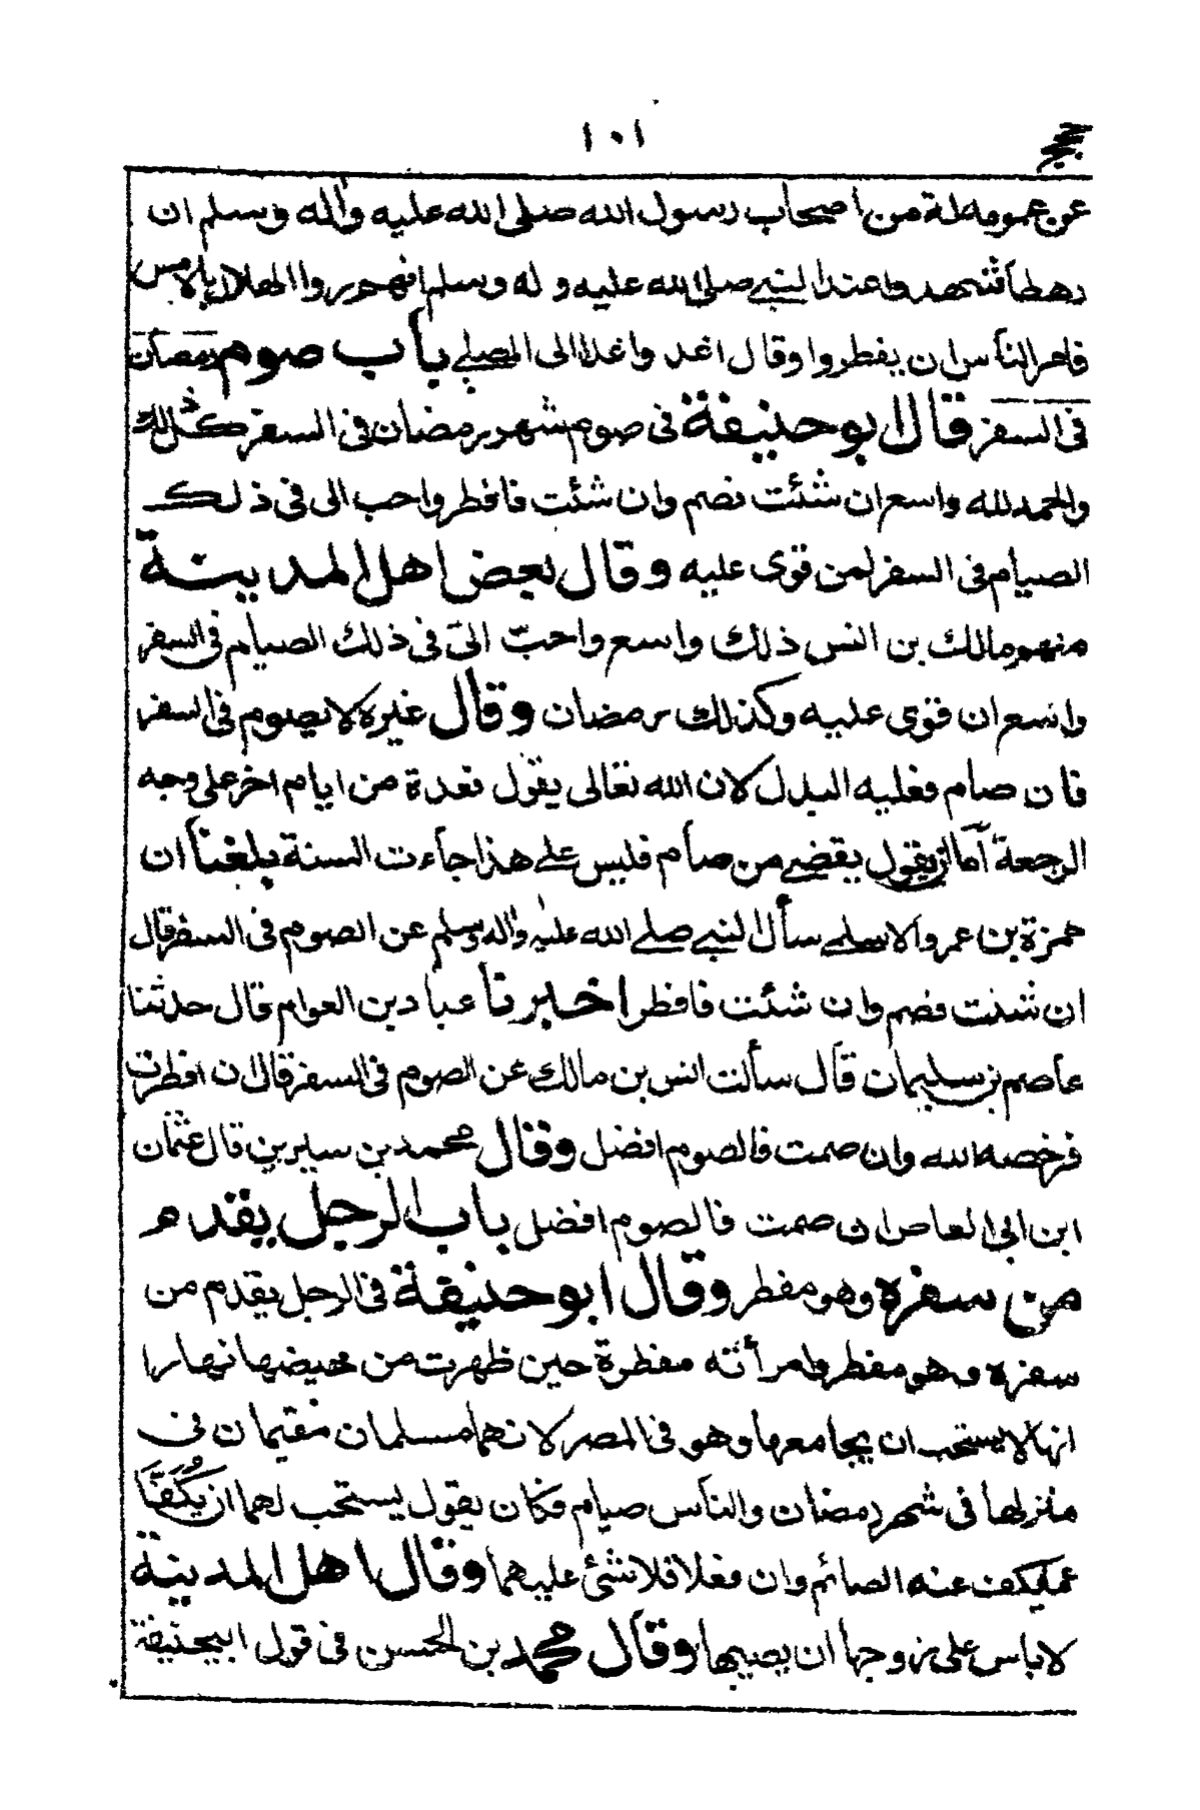 ١٠١
عن عمومة له من اصحاب رسول الله صلى الله عليه واله وسلم ان
رهطا شهدوا عند النبي صلى الله عليه و له وسلم انهم رروا الهلال بالامس
فامر الناس ان يفطروا وقال اغد واغدا الى المصلى باب صوم رمضان
فى السفر قال ابو حنيفة فى صوم شهر رمضان فى السفر كل ذلك
والحمد لله واسع ان شئت فصم وان شئت فافطر واحب الى فى ذلك
الصيام فى السفر لمن قوى عليه وقال بعض اهل المدينة
منهم مالك بن انس ذلك واسع واحبّ الىّ فى ذلك الصيام فى السفر
واسع ان قوى عليه وكذلك رمضان وقال غيره لا يصوم فى السفر
فان صام فعليه البدل لان الله تعالى يقول فعدة من ايام اخر على وجه
الرجعة اما ان يقول يقضى من صام فليس على هذا جاءت السنة بلغنا ان
حمزة بن عمرو الاسلمى سأل النبي صلى الله عليه واله وسلم عن الصوم فى السفر قال
ان شئت فصم وان شئت فافطر اخبرنا عباد بن العوام قال حدثنا
عاصم بن سليمان قال سألت انس بن مالك عن الصوم فى السفر قال ان افطرت
فرخصة الله وان صمت فالصوم افضل وقال محمد بن سيرين قال عثمان
ابن ابى العاص ان صمت فالصوم افضل باب الرجل يقدم
من سفره وهو مفطر وقال ابو حنيفة فى الرجل يقدم من
سفره وهو مفطر وامرأته مفطرة حين ظهرت من محيضها نهارا
انه لا يستحب ان يجامعها وهو فى المصر لانهما مسلمان مقيمان فى
منزلها فى شهر رمضان والناس صيام فكان يقول يستحب لهما ان يَكُفَّا
عما يكف عنه الصائم وان فعلا فلا شئ عليهما وقال اهل المدينة
لا باس على زوجها ان يصيبها وقال محمد بن الحسن فى قول ابيحنيفة